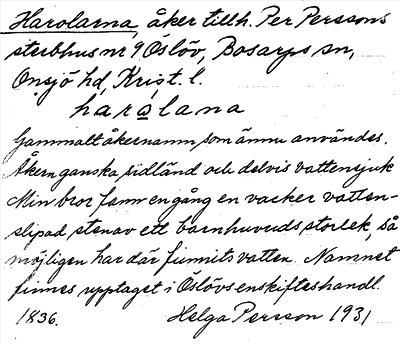 Harolarna, åker tillh. Per Perssons
sterbhus nr 9 Öslöv, Bosarps sn,
Onsjö hd, Krist. l.
harålana
Gammalt åkernamn, som ännu användes.
Åkern ganska sidländ och delvis vattensjuk
Min bror fann en gång en vacker vatten-
slipad, sten av ett barnhuvuds storlek, så
möjligen har där funnits vatten. Namnet
finnes upptaget i Öslövs enskifteshandl.
1836. Helga Persson 1931